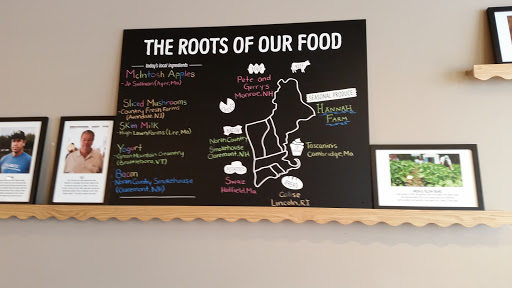 THE ROOTS OF OUR FOOD
today's local ingredients
McIntosh Apples
Sliced Mushrooms
- Country Fresh Farms
(Avondale,
Skim Milk
(Lee, Ma)
Yogurt
- Green Mountain Creamery
(Brattleboro, VT)
Bacon
- North Country Smokehouse
(Claremont, NH)
Pete and
Gerry's
Monroe, NH
SEASONAL PRODUCE
HANNAH
FARM
North Country
Smokehouse
Claremont, NH
Cambridge, Ma
Swaz
Hatfield, Ma
Calise
Lincoln, RI